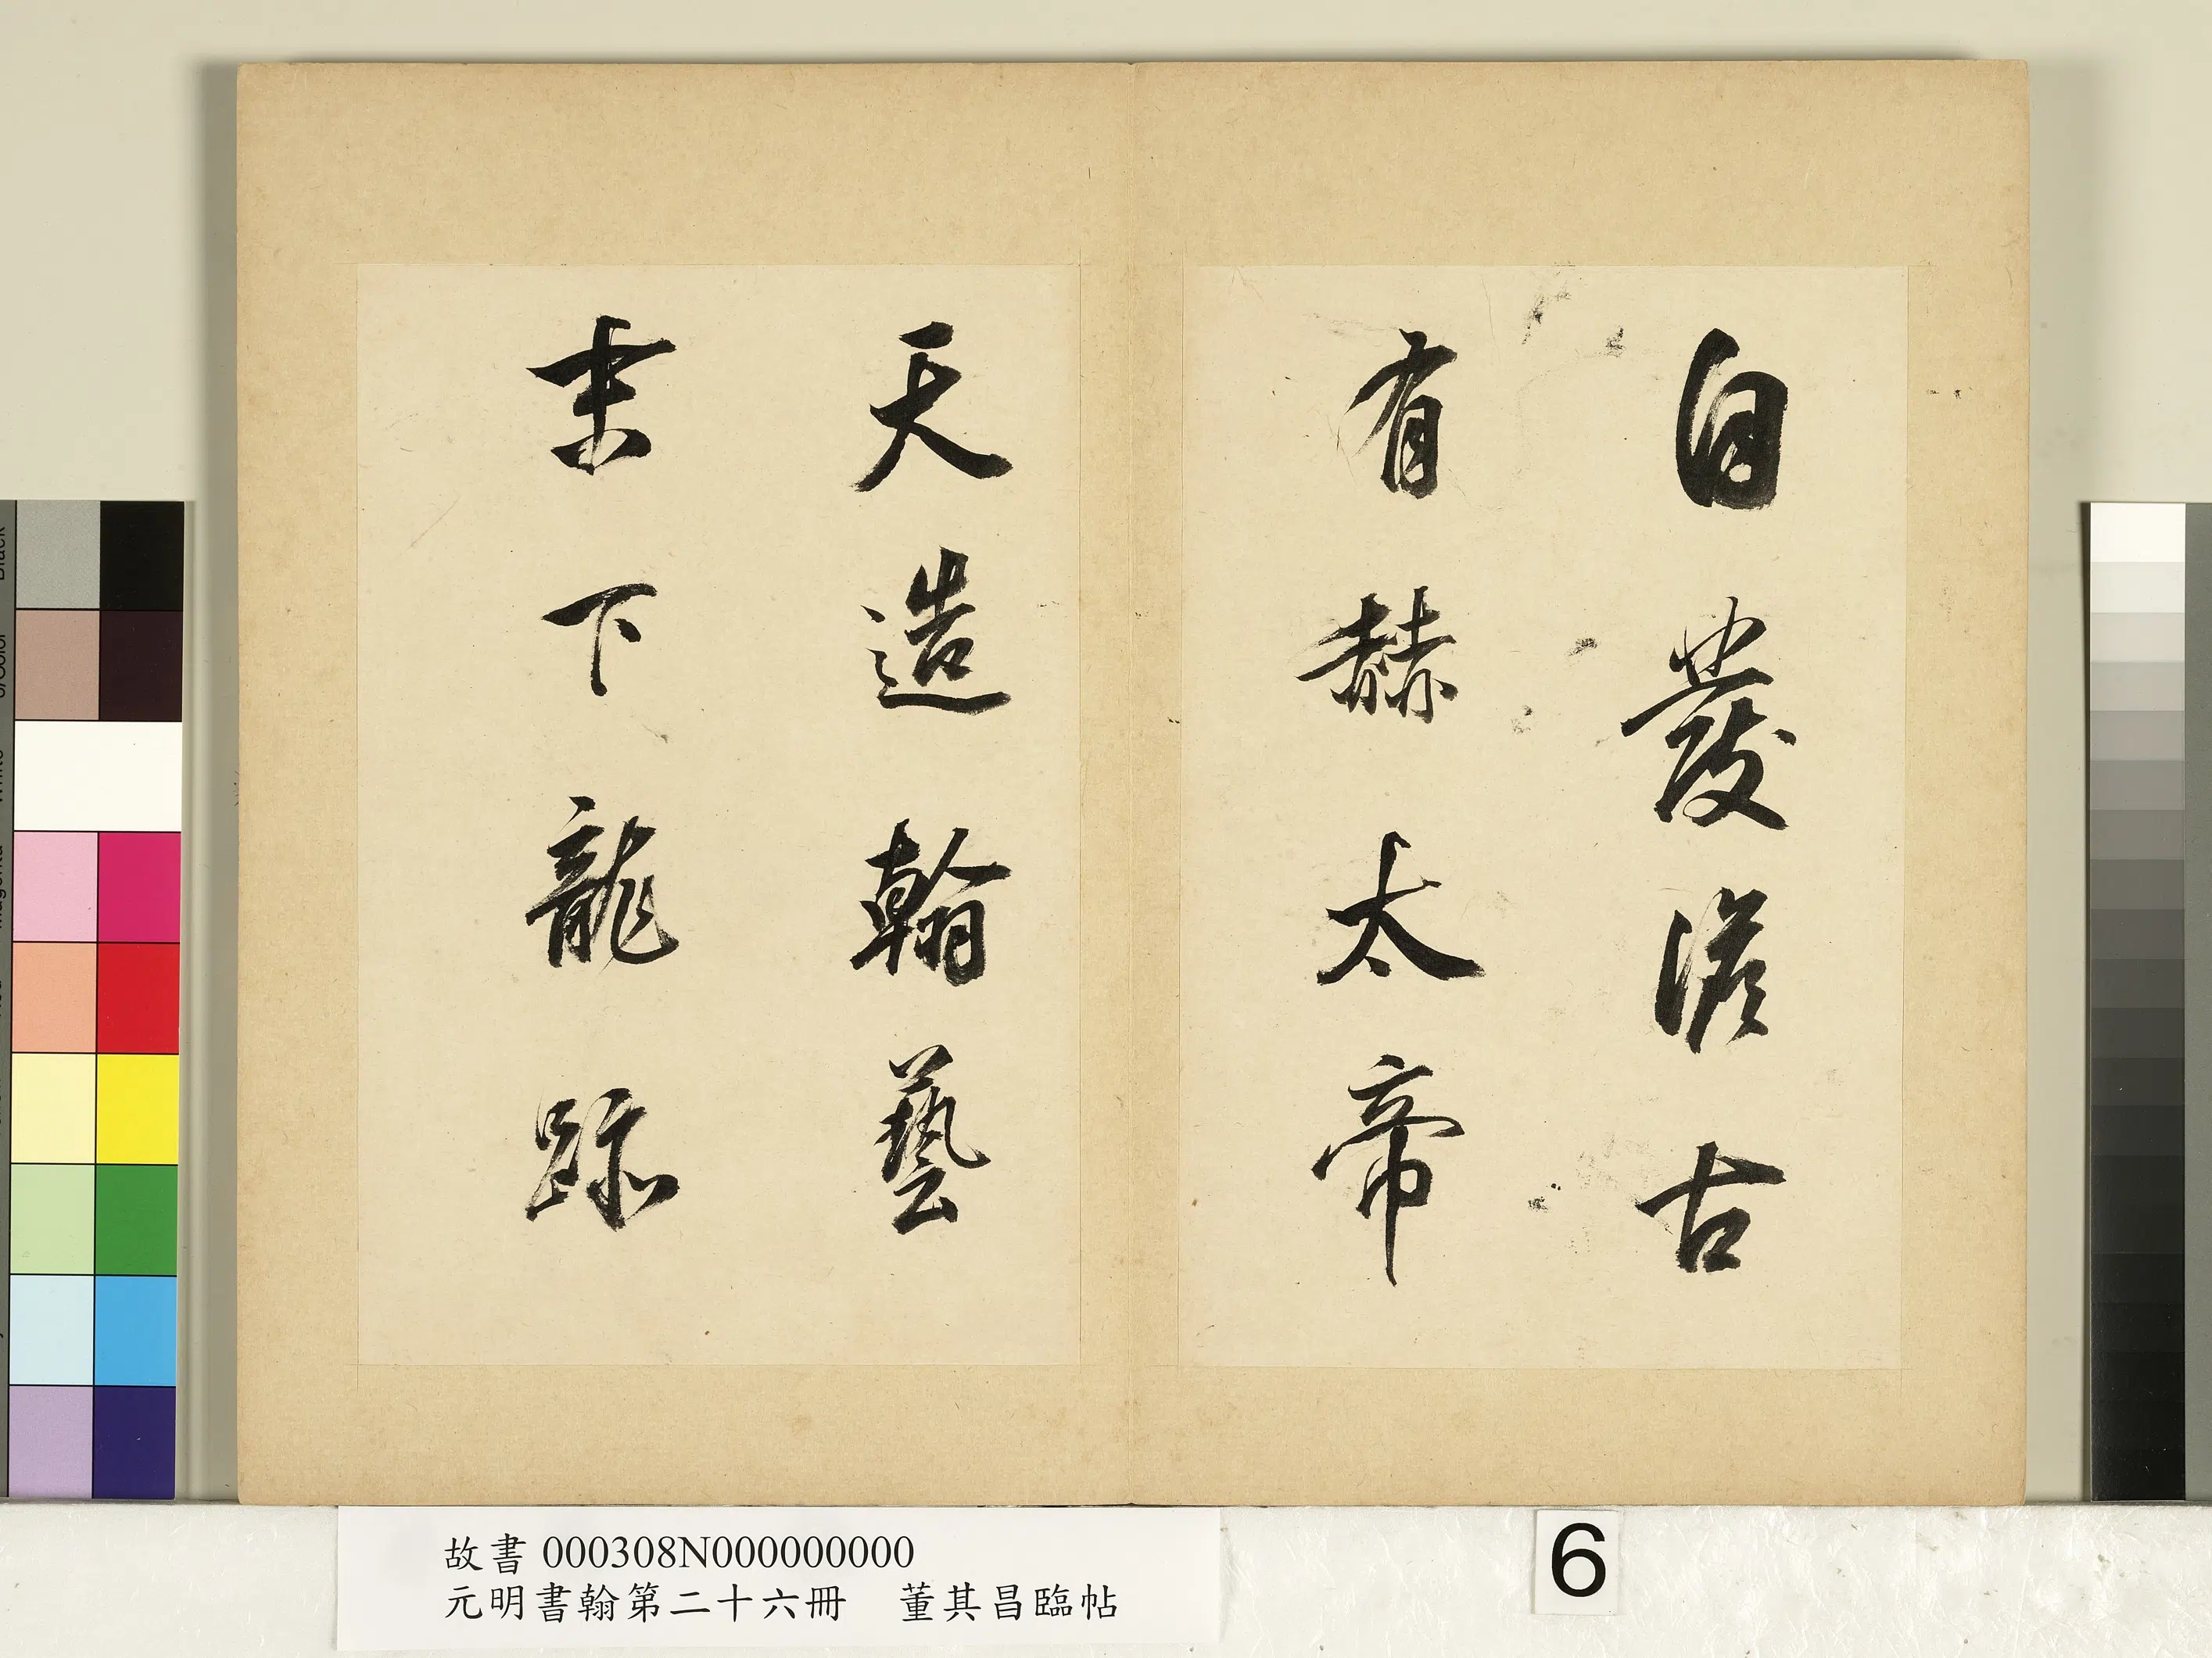 自發澹古
有赫太帝
天造翰藝
末下龍跡
故書 000308N000000000
元明書翰第二十六冊　董其昌臨帖
6